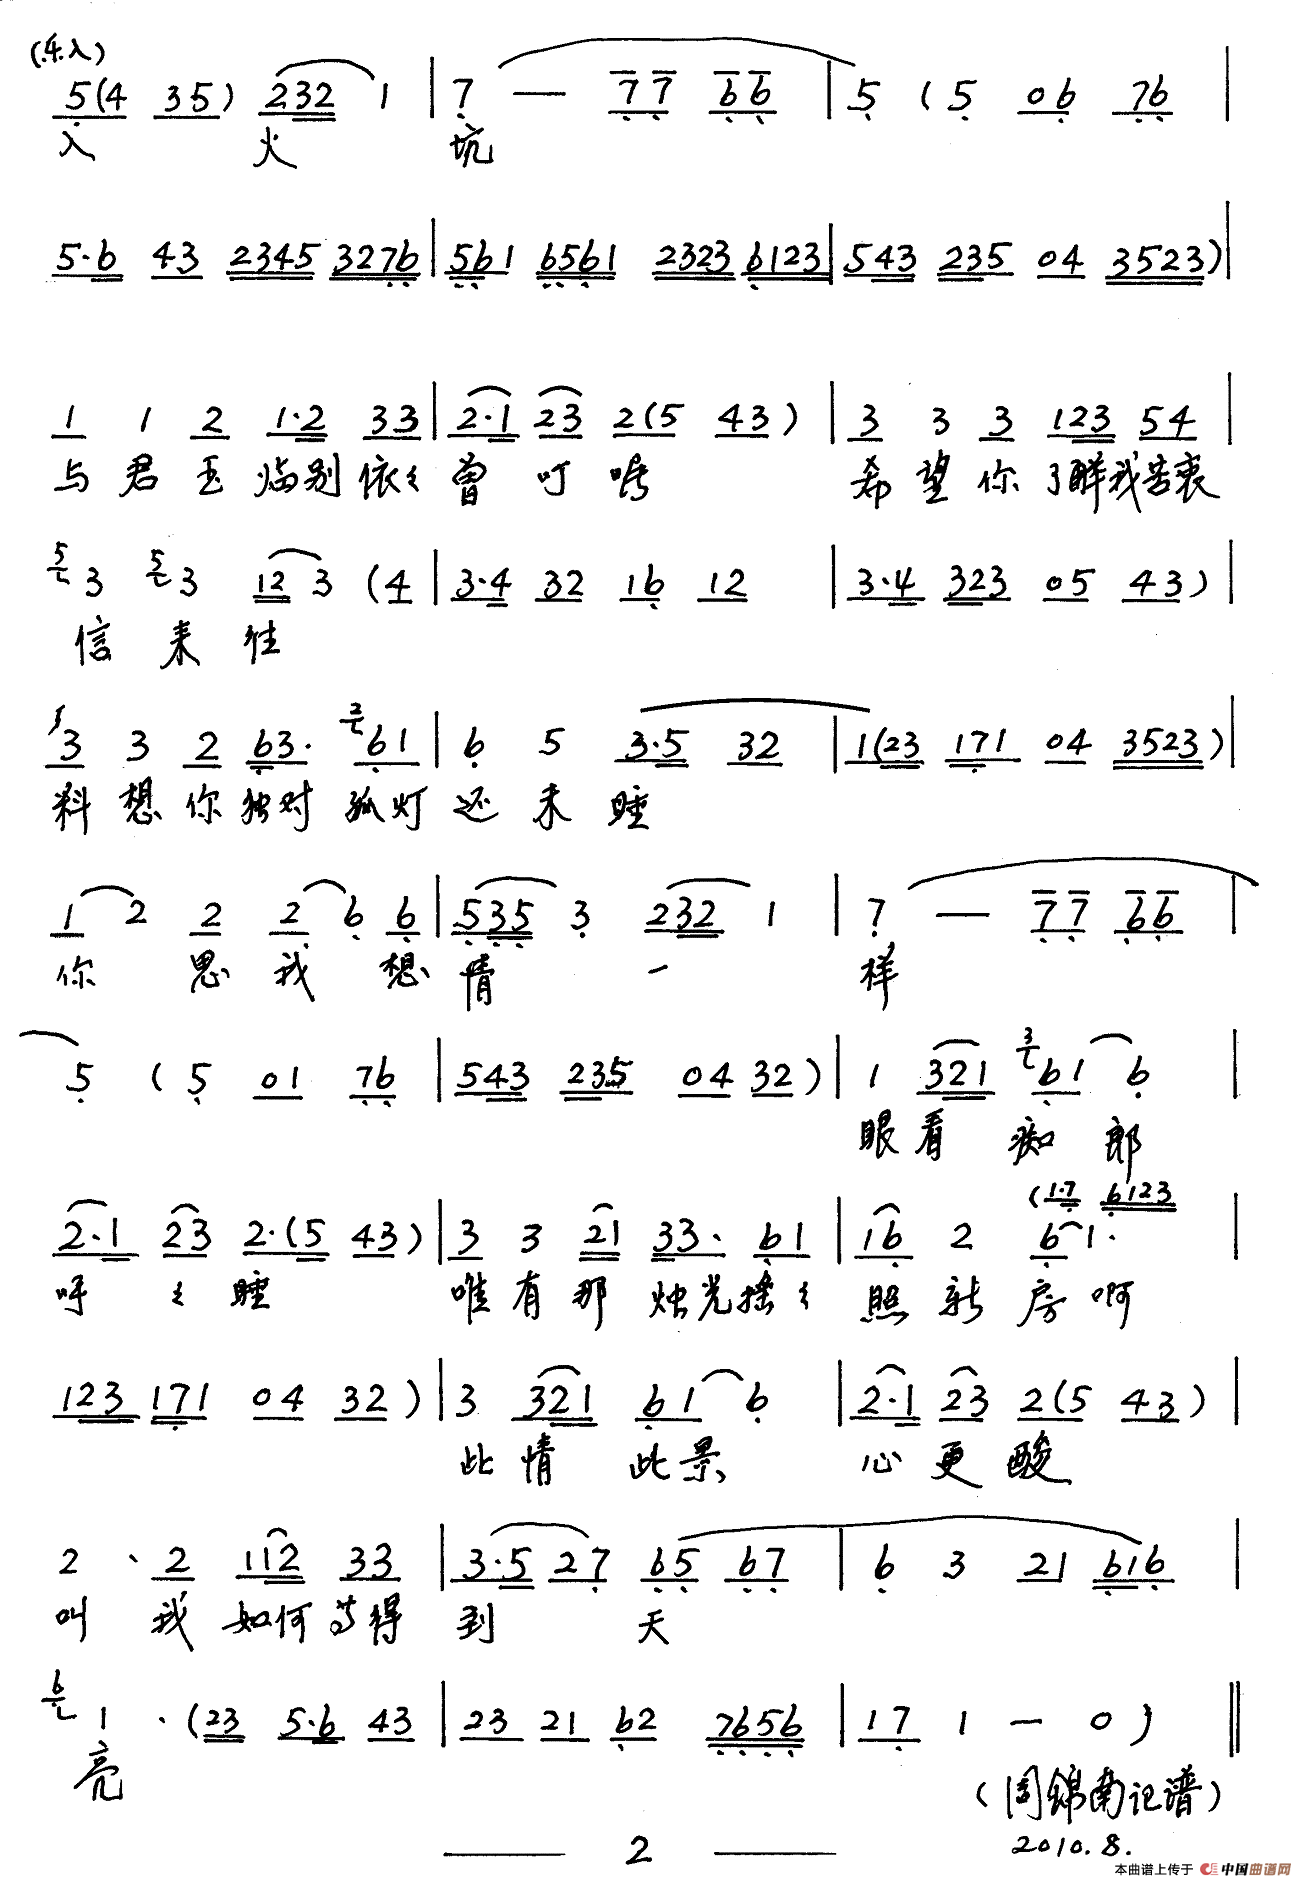 (乐入)
5(4 35) 232 1 | 7 — 77 66 | 5 (5 06 76 |
入 火 坑
5·6 43 2345 3276 | 561 6561 2323 6123 | 543 235 04 3523) |
1 1 2 1·2 33 | 2·1 23 2(5 43) | 3 3 3 123 54 |
与 君 玉 临别 依々 曾 叮 嘱 希 望 你 了解我苦衷
5 3 5 3 12 3 (4 | 3·4 32 16 12 | 3·4 323 05 43) |
信 来 往
3 3 2 63· 2 61 | 6 5 3·5 32 | 1(23 171 04 3523) |
料 想 你 独对 孤灯 还 未 睡
1 2 2 2 6 6 | 535 3 232 1 | 7 — 77 66 |
你 思 我 想 情 一 样
5 (5 01 76 | 543 235 04 32) | 1 321 3 61 6
眼 看 痴 郎
(1·7 6123
2·1 23 2·(5 43) | 3 3 21 33· 61 | 16 2 6 1· |
呼 々 睡 唯 有 那 烛光 摇々 照 新 房 啊
123 171 04 32) | 3 321 61 6 | 2·1 23 2(5 43) |
此 情 此 景 心 更 酸
2 · 2 112 33 | 3·5 27 65 67 | 6 3 21 616 |
叫 我 如何 等得 到 天
6 1 ·(23 5·6 43 | 23 21 62 7656 | 17 1 — 0) ‖
亮
(周锦南记谱)
2010.8.
— 2 —
本曲谱上传于 中国曲谱网